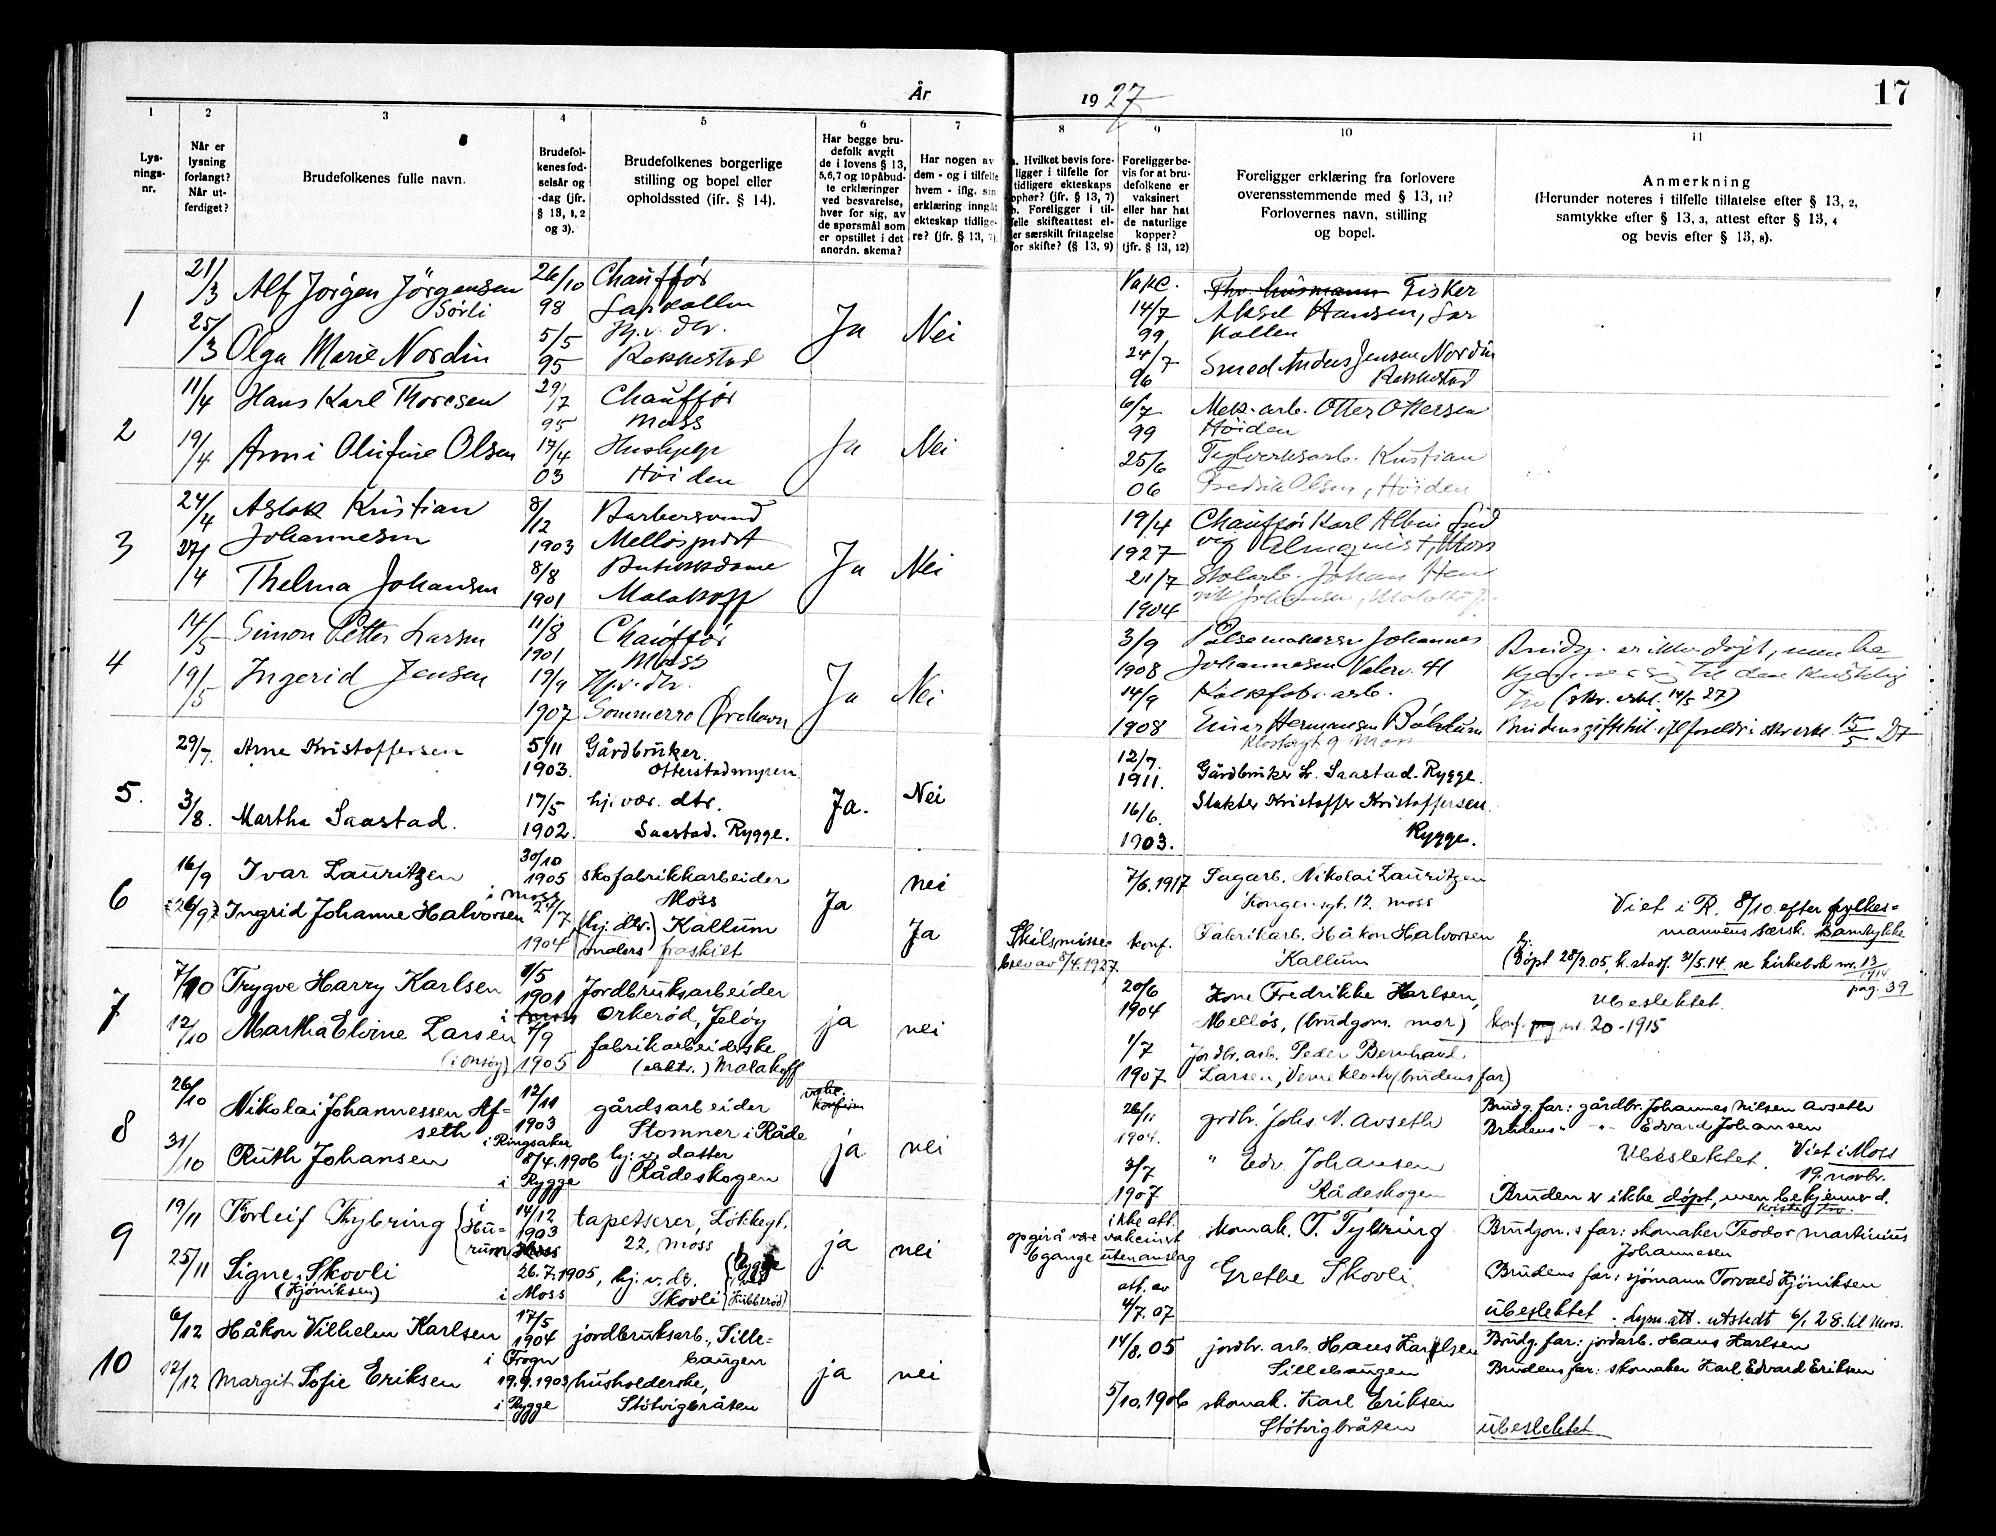 År
19 27
17
1
2
3
4
5
6
7
8
9
10
11
Lys-
nings-
nr.
Når er
lysning
forlangt?
Når ut-
ferdiget?
Brudefolkenes fulle navn.
Brudefol-
kenes fød-
selsår og
-dag (jfr.
§ 13, 1, 2
og 3).
Brudefolkenes borgerlige
stilling og bopel eller
opholdssted (ifr. § 14).
Har begge bru-
defolk avgit
de i lovens § 13,
5,6,7 og 10 påbud-
te erklæringer
ved besvarelse,
hver for sig, av
de spørsmål som
er opstillet i det
anordn. skema?
Har nogen av
dem - og i tilfelle
hvem - iflg. sin
erklæring inngåt
ekteskap tidlige-
re? (jfr. § 13, 7).
a. Hvilket bevis fore-
ligger i tilfelle for
tidligere ekteskaps
ophør? (jfr. § 13, 7)
b. Foreligger i til-
felle skifteattest el-
ler særskilt fritagelse
for skifte? (§ 13, 9)
Foreligger be-
vis for at bru-
defolkene er
vaksinert
eller har hat
de naturlige
kopper?
(jfr. § 13, 12)
Foreligger erklæring fra forlovere
overensstemmende med § 13, 11?
Forlovernes navn, stilling
og bopel.
Anmerkning
(Herunder noteres i tilfelle tillatelse efter § 13, 2,
samtykke efter § 13, 3, attest efter § 13, 4
og bevis efter § 13, 8).
1
21/3
Alf Jörgen Jörgensen
Sörli
26/10
98
Chauffør
25/3
Olga Marie Nordin
5/5
95
Hj.v. dtr.
Rakkestad
Ja
Nei
Vakc.
14/7
99
24/7
96
Fisker
Aksel Hansen, Lar
kollen
Smed Anders Jensen Nordin
Rakkestad
2
11/4
Hans Karl Thoresen
29/7
95
Chauffør
Moss
19/4
Anni Olufine Olsen
17/4
03
Hushjelp
Höiden
Ja
Nei
6/7
99
25/6
06
Mek. arb. Otter Ottersen
Höiden
Teglverksarb. Kristian
Fredrik Olsen, Höiden
3
24/4
Aslak Kristian
Johannesen
8/12
1903
Barbersvend
27/4
Thelma Johansen
8/8
1901
Butikkdame
Malakoff
Ja
Nei
19/4
1927
21/7
1904
Chauffør Karl Albin Lud
vig Almquist, Moss
Johan Hen
rik Johansen, Malakoff
4
14/5
Simon Petter Larsen
11/8
1901
Chauffør
Moss
19/5
Ingerid Jensen
1907
Hj.v. dtr.
Sommerro Örehavn
Ja
Nei
3/9
1908
14/9
1908
Pölsemakersv Johannes
Johannesen Valerv. 41
Kalkfabr. arb.
Einar Hermansen
Klostergt 9 Moss
Brudg. er ikke döpt, men be
kjenner sig til den kristelig
tro (skr. erkl. 14/5 27)
15/5 27
5.
29/7.
Arne Kristoffersen
5/11
1903.
Gårdbruker.
Otterstadmyren.
3/8.
Martha Saastad.
17/5
1902.
hj. vær. dtr.
Saastad. Rygge.
Ja.
Nei
12/7.
1911.
16/6.
1903.
Gårdbruker Lr. Saastad. Rygge.
Slakter Kristoffer Kristoffersen.
Rygge.
6
16/9
Ivar Lauritzen
i Moss
30/10
1905
skofabrikkarbeider
Moss
26/9
Ingrid Johanne Halvorsen
1904
(hj. dtr.) Kallum
malers fraskilt
Ja
nei
Ja
Skilsmisse-
brev av 8/4.1927.
7/6.1917
konf.
Sagarb. Nikolai Lauritzen
Kongensgt. 12, Moss
Fabrikarb. Håkon Halvorsen
Kallum
Viet i R. 8/10. efter fylkes-
mannens særsk. samtykke
(Döpt 28/2.05, k. stadf. 31/5.14. se kirkebok nr. 13
1914
pag. 39
7
7/10
Trygve Harry Karlsen
1/5
1901
Jordbruksarbeider
Orkeröd, Jelöy
12/10
Martha Elvine Larsen
(i Onsöy)
7/9
1905
fabrikarbeiderske
(elektr.) Malakoff
ja
nei
20/6
1904
1/7
1907
Kone Fredrikke Karlsen,
Mellös, (brudgom. mor)
Jordbr. arb. Peder Bernhard
Larsen, Verne kloster (brudens far)
Ubeslektet.
konf. pag nr. 20-1915
8
26/10
Nikolai Johannessen Af-
seth
i Ringsaker
12/11
1903
gårdsarbeider
Stomner i Råde
31/10
Ruth Johansen
8/4.1906
i Rygge
hj. v. datter
Rådeskogen
ja
nei
26/11
1904.
3/7
1907
grdbr. Johs. N. Avseth
" Edv. Johansen
Rådeskogen
Brudg. far: gårdbr. Johannes Nilsen Avseth
Brudens " " Edvard Johansen
Ubeslektet.
Viet i Moss
19. novbr.
Bruden er ikke döpt, men bekjenner d.
kristne tro.
9
19/11
Torleif Tybring
i
Hu-
rum
14/12
1903
tapetserer, Lökkegt.
22, Moss
25/11
Signe Skovli
(Hjöniksen)
26.7.1905,
i Moss
hj. v. dr.
Skovli
ja
nei
opgir å være
6 gange
ikke att.
vakcinert
uten anslag
att. av
4/7.07
skomak. T. Tybring
Grethe Skovli
Brudgom.s far: skomaker Teodor Martinius
Johannesen
Brudens far: sjömann Torvald Hjöniksen
ubeslektet. Lysn. att. utstedt 6/1 28. til Moss.
10
6/12
Håkon Vilhelm Karlsen
17/5
1904
i Frogn
jordbruksarb., Sille-
baugen
12/12
Margit Sofie Eriksen
19.9.1903
i Rygge
husholderske,
Stötvigbråten
ja
nei
14/8.05
5/10.1906
jordbr. arb. Hans Karlsen
Sillebaugen
skomak. Karl Eriksen
Stötvigbråten
Brudg. far: jordarb. Hans Karlsen
Brudens far: skomaker Karl Edvard Eriksen
ubeslektet